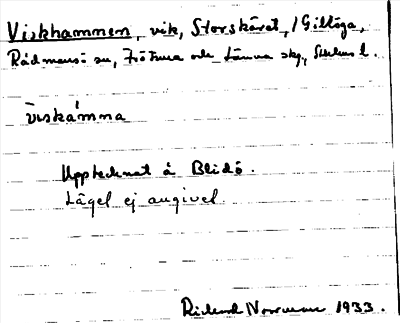 Viskhammen, vik, Storskäret, / Gillöga,
Rådmansö sn, Frötuna och Länna skg, Sthlms l.
viskámma
Upptecknat å Blidö.
Läget ej angivet.
Rickard Norrman 1933.